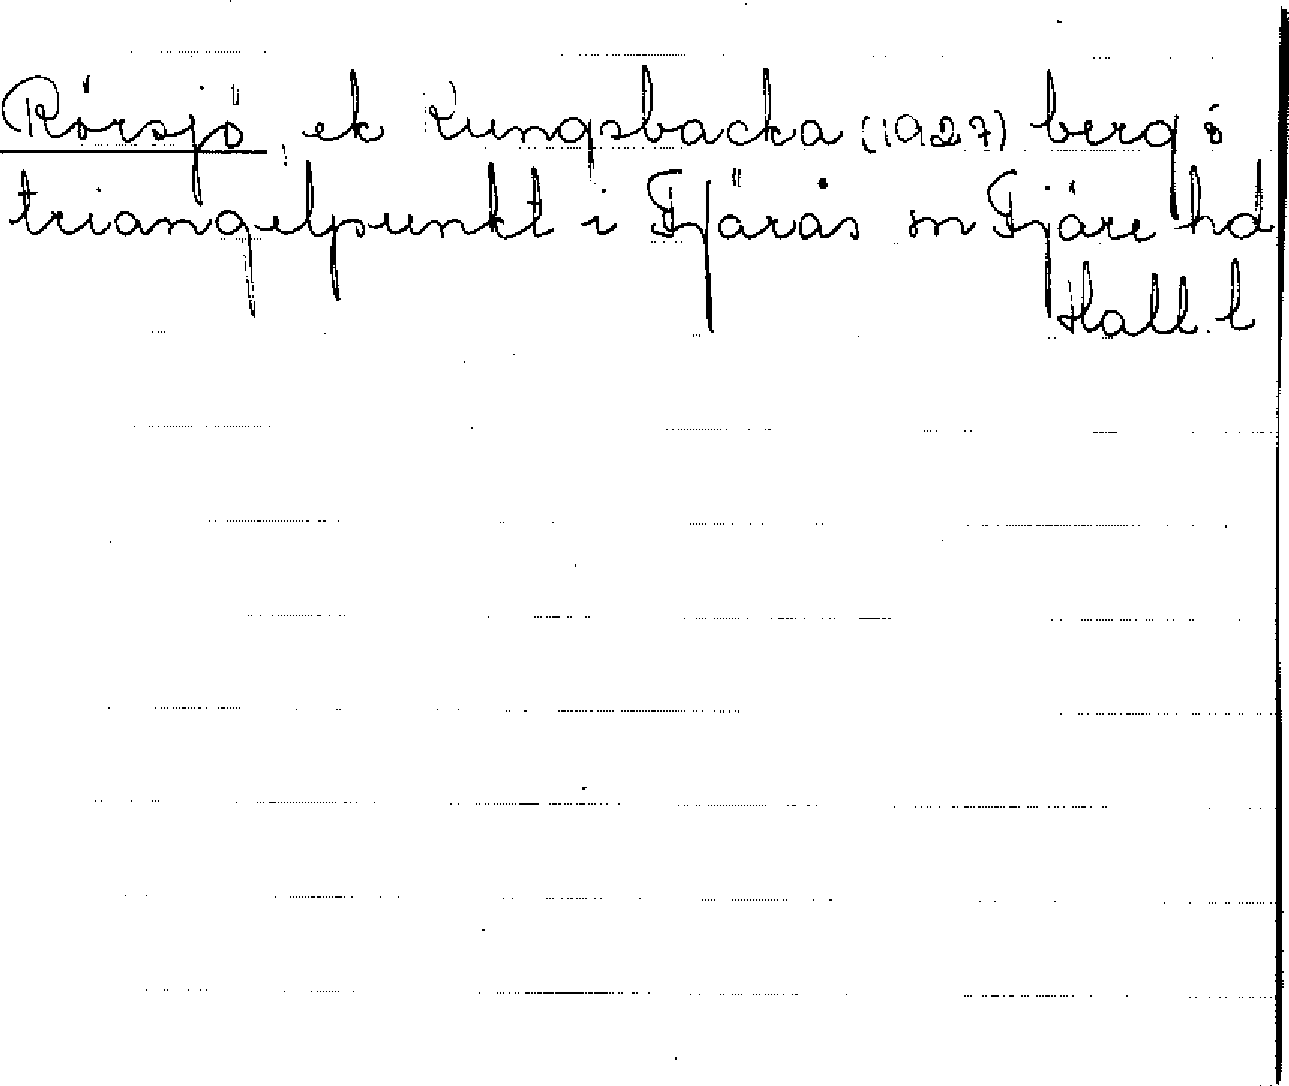 Rörsjö, ek Kungsbacka (1927) berg &
triangelpunkt i Fjärås sn Fjäre hd
Hall. l